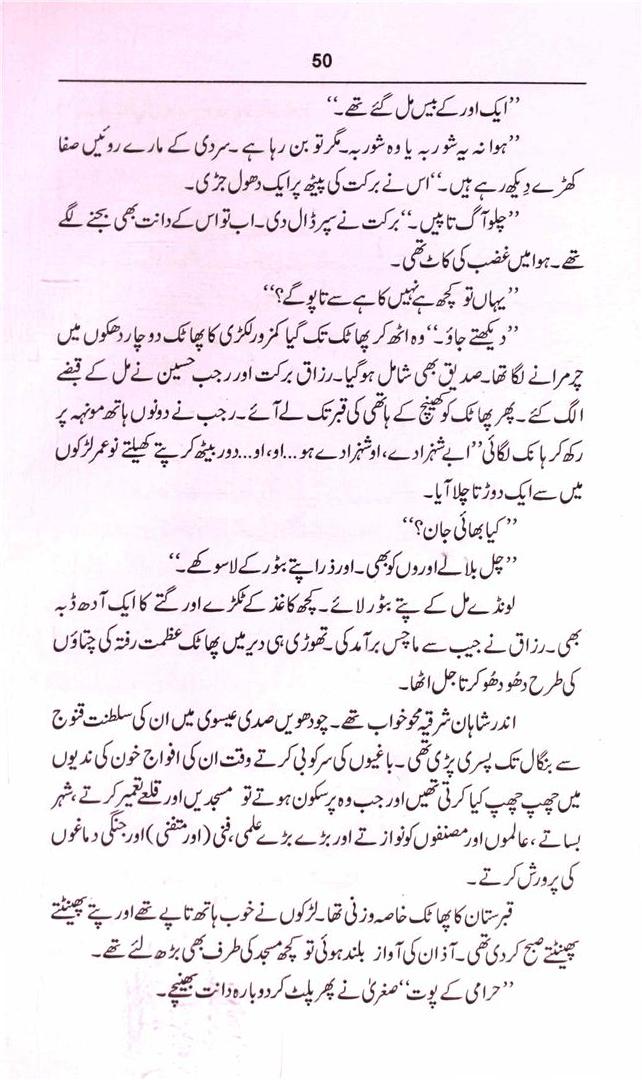 50
’’ایک اور کے بیس مل گئے تھے۔‘‘
’’ہوا نہ یہ شوربہ یا وہ شوربہ۔ مگر تو بن رہا ہے۔ سردی کے مارے روئیں صفا
کھڑے دِیکھ رہے ہیں۔‘‘ اس نے برکت کی پیٹھ پر ایک دھول جڑی۔
’’چلو آگ تاپیں۔‘‘ برکت نے سپر ڈال دی۔ اب تو اس کے دانت بھی بجنے لگے
تھے۔ ہوا میں غضب کی کاٹ تھی۔
’’یہاں تو کچھ ہے نہیں کا ہے سے تاپو گے؟‘‘
’’دیکھتے جاؤ۔‘‘ وہ اٹھ کر پھاٹک تک گیا کمزور لکڑی کا پھاٹک دو چار دھکوں میں
چرمرانے لگا تھا۔ صدیق بھی شامل ہوگیا۔ رزاق برکت اور رجب حسین نے مل کے قبضے
الگ کئے۔ پھر پھاٹک کو کھینچ کے ہاتھی کی قبر تک لے آئے۔ رجب نے دونوں ہاتھ مونہہ پر
رکھ کر ہانک لگائی ’’ابے شہزادے، او شہزادے ہو...او، او...دور بیٹھ کر پتے کھیلتے نو عمر لڑکوں
میں سے ایک دوڑتا چلا آیا۔
’’کیا بھائی جان؟‘‘
’’چل بلا لے اوروں کو بھی۔ اور ذرا پتے بٹور کے لا سوکھے۔‘‘
لونڈے مل کے پتے بٹور لائے۔ کچھ کاغذ کے ٹکڑے اور گتے کا ایک آدھ ڈبہ
بھی۔ رزاق نے جیب سے ماچس برآمد کی۔ تھوڑی ہی دیر میں پھاٹک عظمت رفتہ کی چتاؤں
کی طرح دھُو دھُو کرتا جل اٹھا۔
اندر شاہان شرقیہ محو خواب تھے۔ چودھویں صدی عیسوی میں ان کی سلطنت قنوج
سے بنگال تک پسری پڑی تھی۔ باغیوں کی سرکوبی کرتے وقت ان کی افواج خون کی ندیوں
میں چھپ چھپ کیا کرتی تھیں اور جب وہ پر سکون ہوتے تو مسجدیں اور قلعے تعمیر کرتے، شہر
بساتے، عالموں اور مصنفوں کو نوازتے اور بڑے بڑے علمی، فنی (اور متفنی) اور جنگی دماغوں
کی پرورش کرتے۔
قبرستان کا پھاٹک خاصہ وزنی تھا۔ لڑکوں نے خوب ہاتھ تاپے تھے اور پتے پھینٹتے
پھینٹتے صبح کردی تھی۔ آذان کی آواز بلند ہوئی تو کچھ مسجد کی طرف بھی بڑھ لئے تھے۔
’’حرامی کے پوت‘‘ صغریٰ نے پھر پلٹ کر دوبارہ دانت بھینچے۔